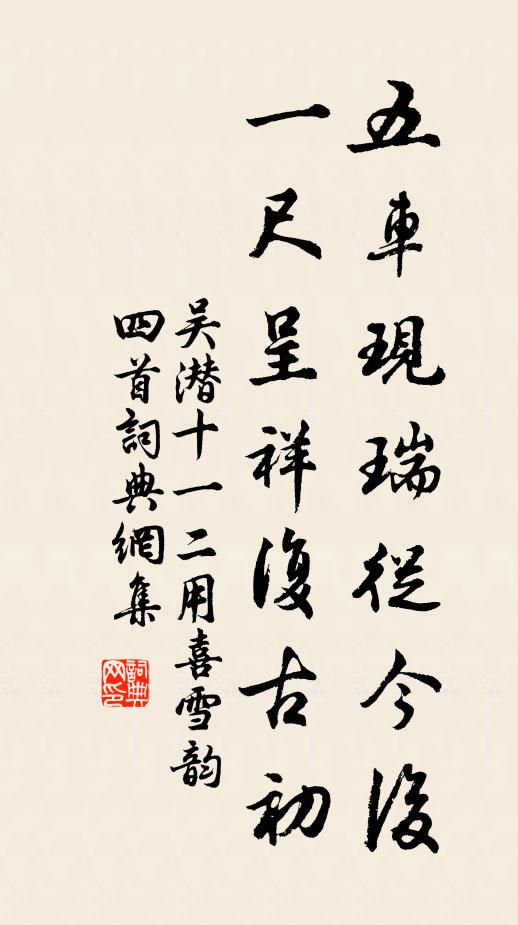 五車現瑞從今後
一尺呈祥復古初
吴潜十一二用喜雪韵
四首詞典網集
詞典网印